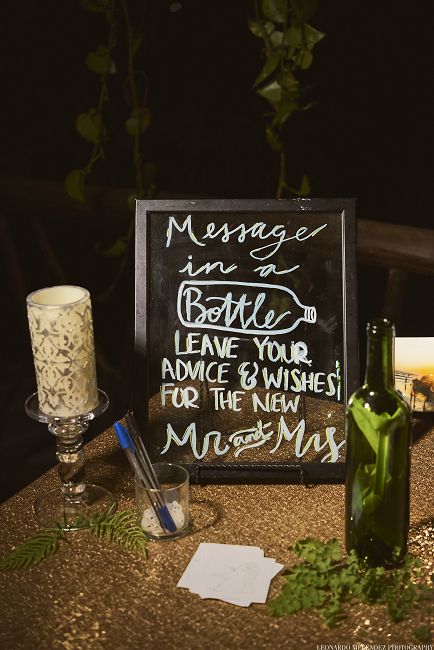 Message
in a
Bottle
LEAVE YOUR
ADVICE & WISHES
FOR THE NEW
Mr and Mrs
LEONARDO MELENDEZ PHOTOGRAPHY